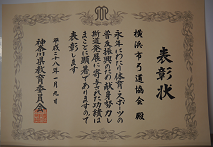 表彰状
横浜市弓道協会 殿
永年にわたり体育・スポーツの
普及振興のため献身努力し
斯道発展に寄与された功績は
まことに顕著であります
表彰します
平成二八年一月九日
神奈川県教育委員会